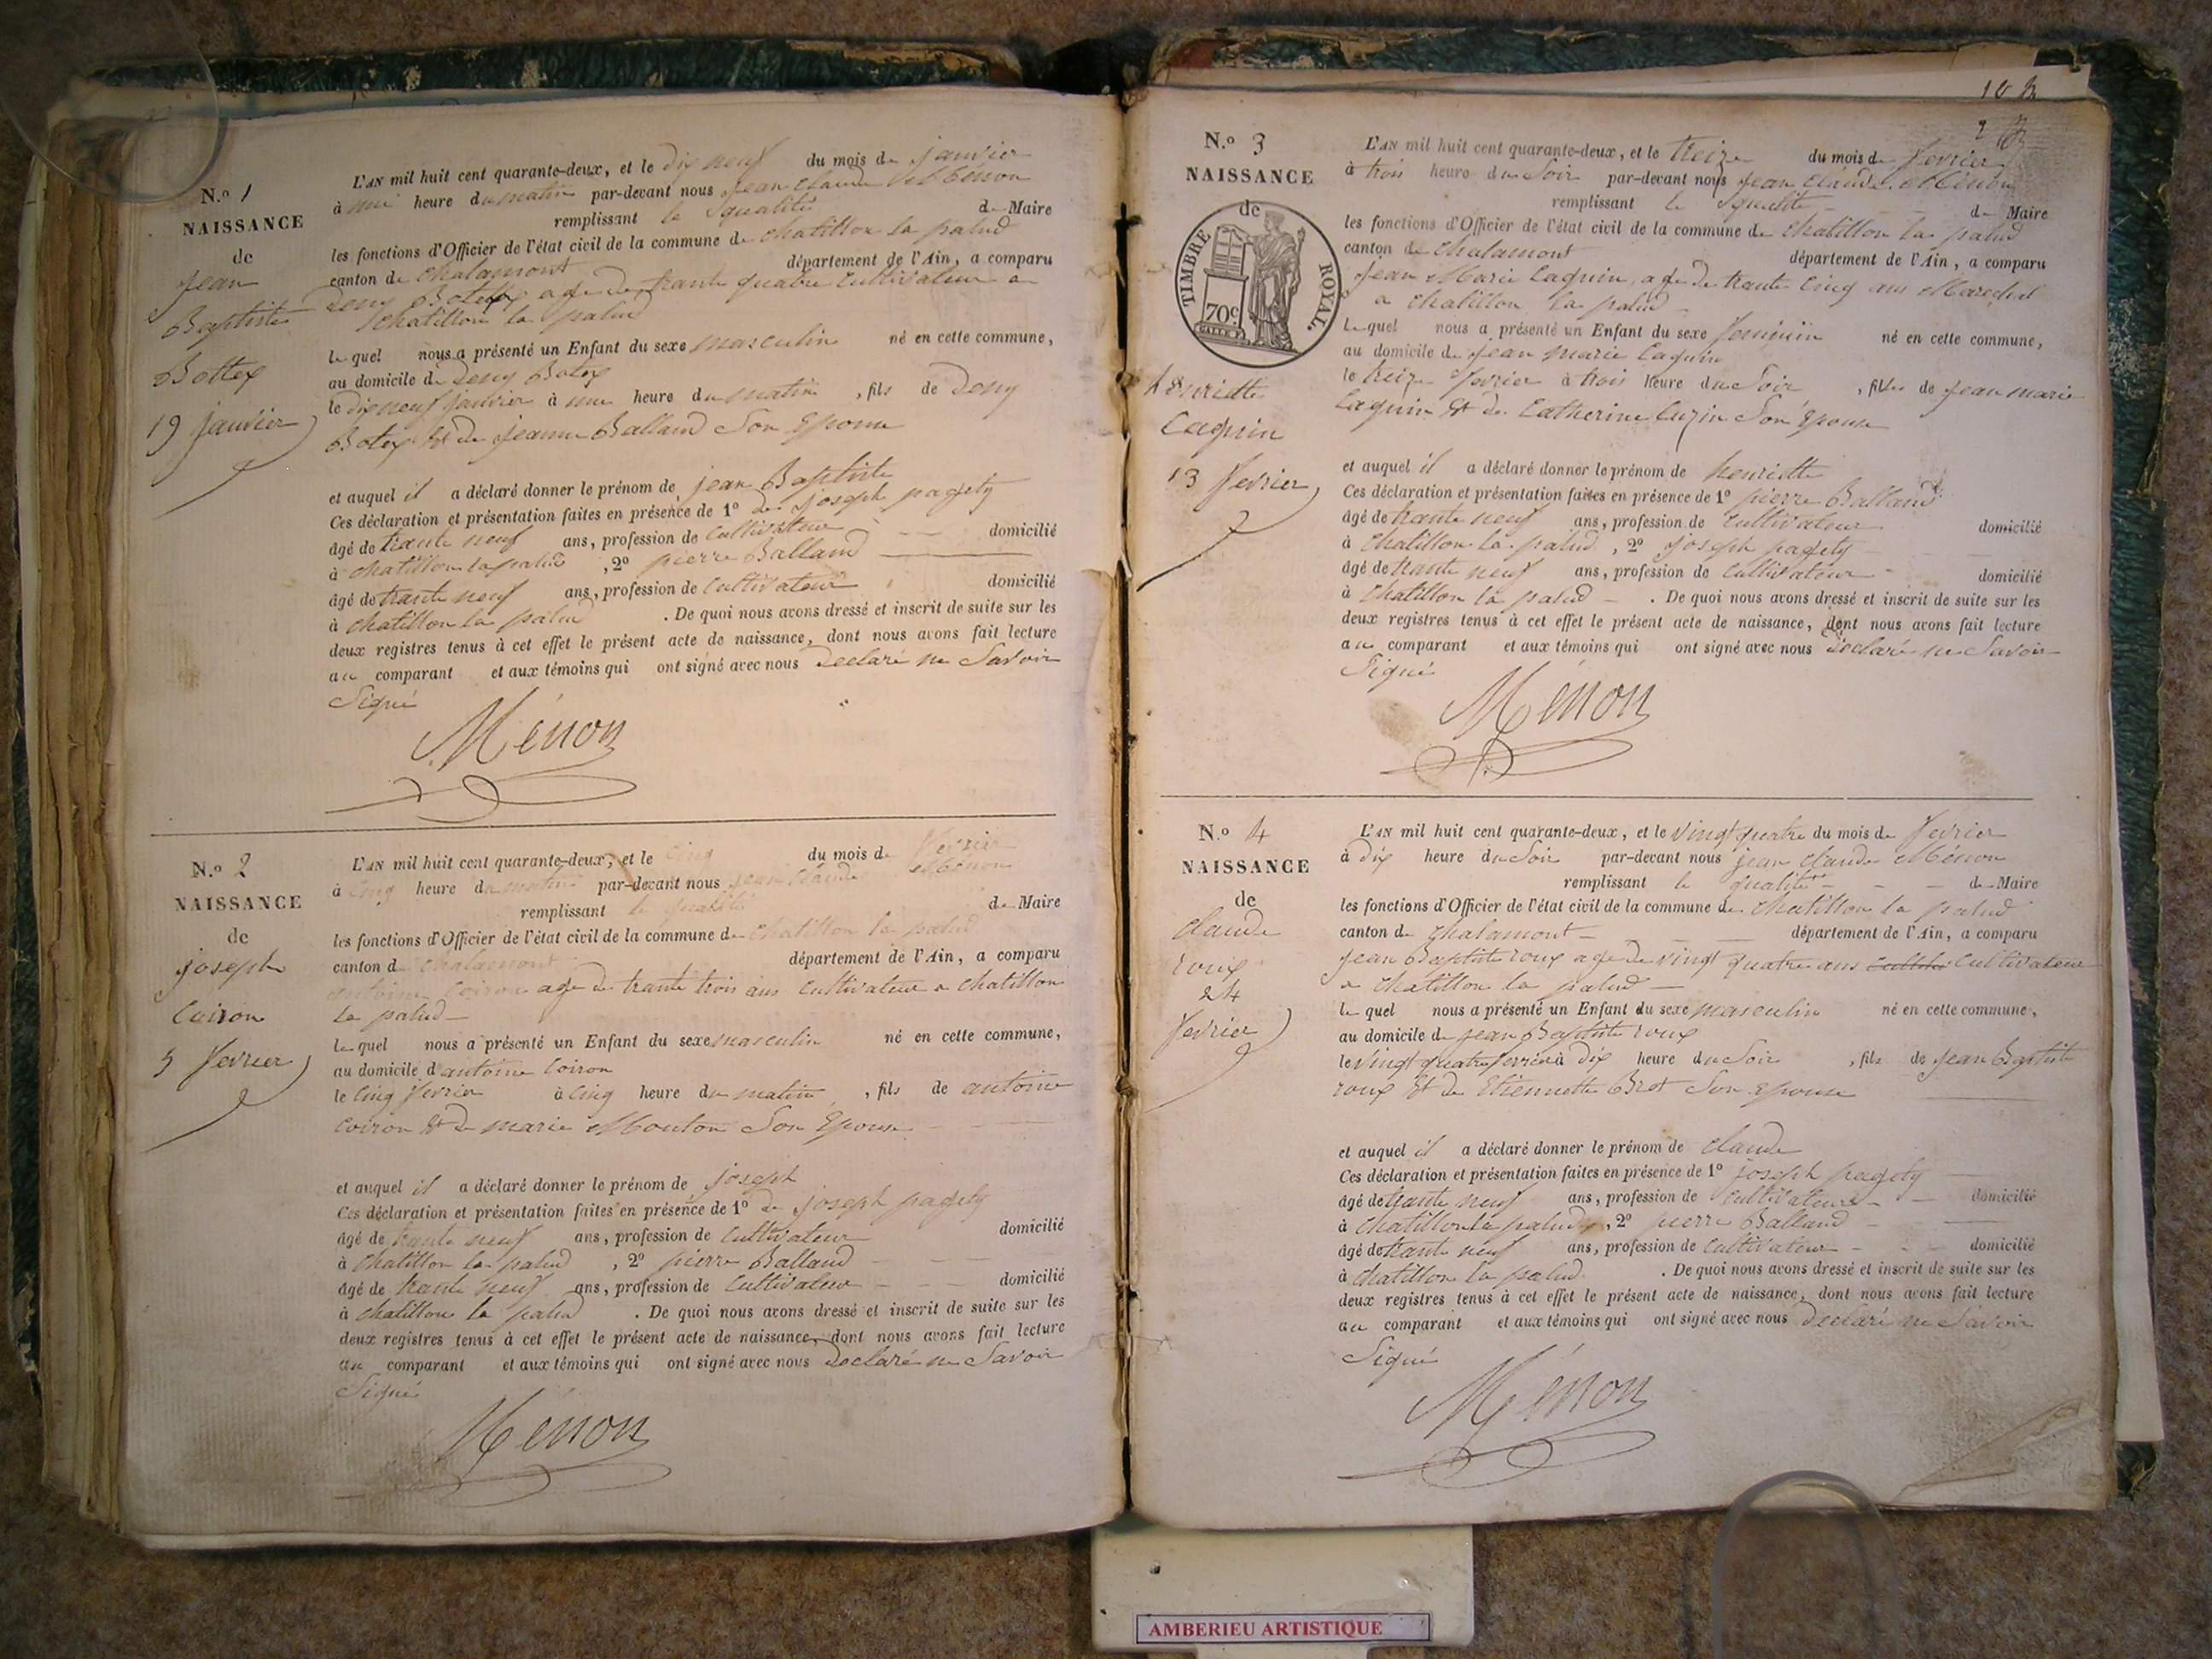 N.º 1
NAISSANCE
de
jean
Baptiste
Bottex
19 janvier
L'AN mil huit cent quarante-deux, et le dix neuf du mois de janvier
à une heure du matin par-devant nous jean claude Ménon
remplissant la qualité de Maire
les fonctions d'Officier de l'état civil de la commune de chatillon la palud
canton de chalamont département de l'Ain, a comparu
Deny Botex age de trante quatre cultivateur a
chatillon la palud
lequel nous a présenté un Enfant du sexe masculin né en cette commune,
au domicile de Deny Botex
le dix neuf janvier à une heure du matin, fils de Deny
Botex et de jeanne Balland Son Epouse
et auquel il a déclaré donner le prénom de jean Baptiste
Ces déclaration et présentation faites en présence de 1º de joseph pagety
âgé de trante neuf ans, profession de Cultivateur domicilié
à chatillon la palud, 2º pierre Balland
âgé de trante neuf ans, profession de Cultivateur domicilié
à chatillon la palud. De quoi nous avons dressé et inscrit de suite sur les
deux registres tenus à cet effet le présent acte de naissance, dont nous avons fait lecture
au comparant et aux témoins qui ont signé avec nous Declaré ne Savoir
Signé
Ménon
N.º 2
NAISSANCE
de
joseph
Coiron
5 fevrier
L'AN mil huit cent quarante-deux, et le cinq du mois de fevrier
à cinq heure du matin par-devant nous jean claude Ménon
remplissant la qualité de Maire
les fonctions d'Officier de l'état civil de la commune de chatillon la palud
canton de chalamont département de l'Ain, a comparu
antoine Coiron age de trante trois ans Cultivateur a chatillon
la palud
lequel nous a présenté un Enfant du sexe masculin né en cette commune,
au domicile d'antoine Coiron
le cinq fevrier à cinq heure du matin, fils de antoine
Coiron et de marie Mouton Son Epouse
et auquel il a déclaré donner le prénom de joseph
Ces déclaration et présentation faites en présence de 1º de joseph pagety
âgé de trante neuf ans, profession de Cultivateur domicilié
à chatillon la palud, 2º pierre Balland
âgé de trante neuf ans, profession de Cultivateur domicilié
à chatillon la palud. De quoi nous avons dressé et inscrit de suite sur les
deux registres tenus à cet effet le présent acte de naissance, dont nous avons fait lecture
au comparant et aux témoins qui ont signé avec nous Declaré ne Savoir
Signé
Ménon
102
2
N.º 3
NAISSANCE
de
TIMBRE ROYAL.
70c
henriette
Caquin
13 fevrier
L'AN mil huit cent quarante-deux, et le treize du mois de fevrier
à trois heure du Soir par-devant nous jean claude Ménon
remplissant la qualité de Maire
les fonctions d'Officier de l'état civil de la commune de chatillon la palud
canton de chalamont département de l'Ain, a comparu
jean Marie Caquin, age de trante Cinq ans Marechal
a chatillon la palud
lequel nous a présenté un Enfant du sexe feminin né en cette commune,
au domicile de jean marie Caquin
le treize fevrier à trois heure du Soir, fille de jean marie
Caquin et de Catherine Cuzin Son Epouse
et auquel il a déclaré donner le prénom de henriette
Ces déclaration et présentation faites en présence de 1º pierre Balland
âgé de trante neuf ans, profession de cultivateur domicilié
à chatillon la palud, 2º joseph pagety
âgé de trante neuf ans, profession de Cultivateur domicilié
à chatillon la palud. De quoi nous avons dressé et inscrit de suite sur les
deux registres tenus à cet effet le présent acte de naissance, dont nous avons fait lecture
au comparant et aux témoins qui ont signé avec nous Déclaré ne Savoir
Signé
Ménon
N.º 4
NAISSANCE
de
claude
roux
24
fevrier
L'AN mil huit cent quarante-deux, et le vingt quatre du mois de fevrier
à dix heure du Soir par-devant nous jean claude Ménon
remplissant la qualité de Maire
les fonctions d'Officier de l'état civil de la commune de chatillon la palud
canton de chalamont département de l'Ain, a comparu
jean Baptiste roux age de vingt quatre ans Cultivateur
a chatillon la palud
lequel nous a présenté un Enfant du sexe masculin né en cette commune,
au domicile de jean Baptiste roux
le vingt quatre fevrier à dix heure du Soir, fils de jean Baptiste
roux et de Etiennette Brot Son epouse
et auquel il a déclaré donner le prénom de claude
Ces déclaration et présentation faites en présence de 1º joseph pagety
âgé de trante neuf ans, profession de Cultivateur domicilié
à chatillon la palud, 2º pierre Balland
âgé de trante neuf ans, profession de Cultivateur domicilié
à chatillon la palud. De quoi nous avons dressé et inscrit de suite sur les
deux registres tenus à cet effet le présent acte de naissance, dont nous avons fait lecture
au comparant et aux témoins qui ont signé avec nous Declaré ne Savoir
Signé
Ménon
AMBERIEU ARTISTIQUE